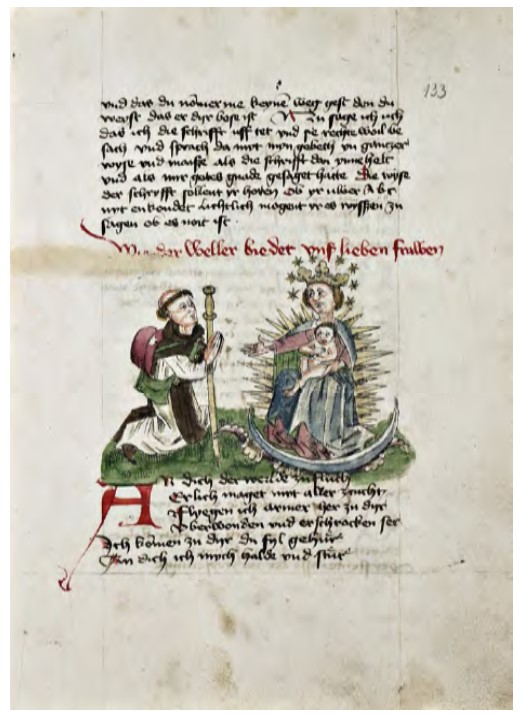 133
vnd das du nommer me keynē weg gest den du
weyst das er dyr bose ist Nu sage ich uch
das ich die schrifft uff tet vnd sie recht woil be
sach vnd sprach da mit myn gebeth yn gantzer
wyse vnd maisse als die schrifft dan ynne helt
vnd als mir gotes gnade gesaget hatte Die wyse
der schryfft sollent yr horen Ob yr uwer A b c
nyt enkondet Lichtlich mogent yr es wyssen zu
sagen ob es noit ist
Wie der Weller biedet vnß lieben frauwen
AN dich der welde zu flucht
Erlich maget mit aller zucht
Flyegen ich armer her zu dyr
Vberwonden vnd erschrocken ser
Ich komen zu dyr du fyl gehur
An dich ich mych halde vnd stur